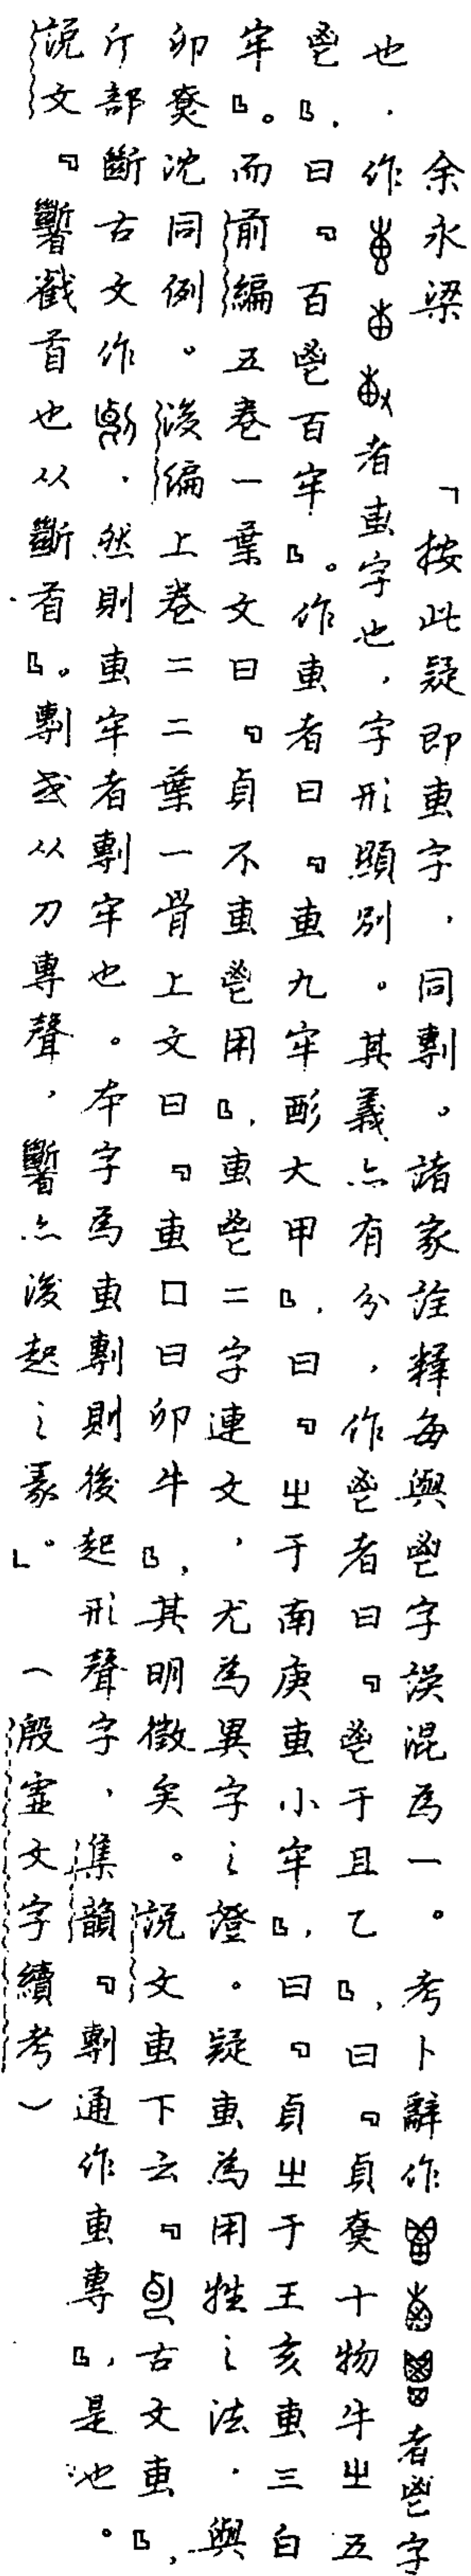 余永梁 「按此疑即叀字,同剸。諸家詮釋每與鬯字誤混為一。考卜辭作者鬯字
也.作者叀字也,字形顯別。其義亦有分,作鬯者曰『鬯于且乙』,曰『貞尞十物牛㞢五
鬯』,曰『百鬯百牢』。作叀者曰『叀九牢大甲』,曰『㞢于南庚叀小牢』,曰『貞㞢于王亥叀三白
牢』。而前編五卷一葉文曰『貞不叀鬯用』,叀鬯二字連文,尤為異字之證。疑叀為用牲之法.與
卯尞沈同例。後編上卷二二葉一骨上文曰『叀口曰卯牛』,其明徵矣。說文叀下云『古文叀』,
斤部斷古文作.然則叀牢者剸牢也。本字為叀剸則後起形聲字,集韻『剸通作叀專』,是也。
說文『𩠹截首也从斷首』。剸或从刀專聲,𩠹亦後起之篆」。(殷虛文字續考)